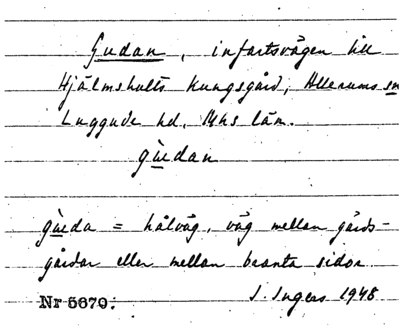 Gudan, infartsvägen till
Hjälmshults Kungsgård, Allerums sn
Luggude hd. Mhs län.
gùedan
gùeda = hålväg, väg mellan gärds-
gårdar eller mellan branta sidor.
I. Ingers 1948
Nr 5670.